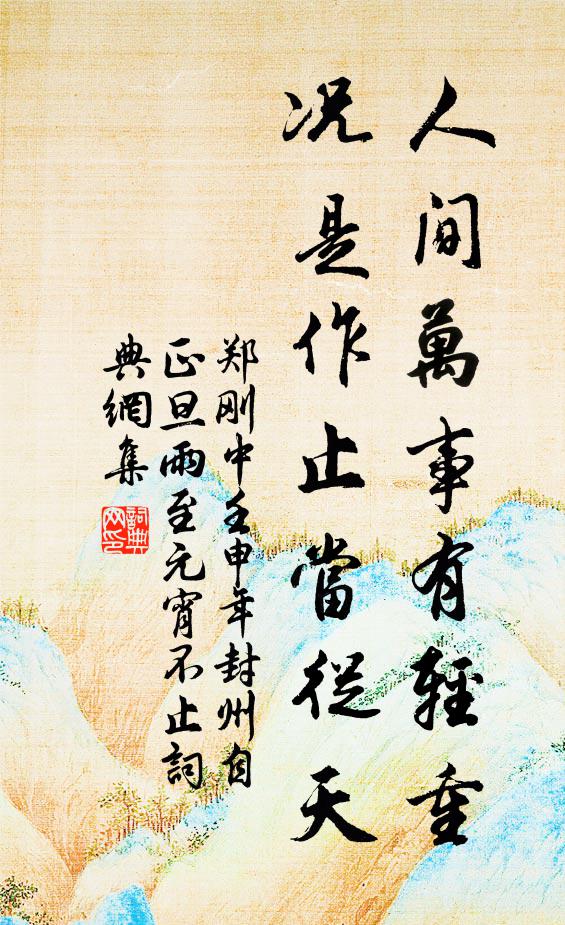 人間萬事有輕重
況是作止當從天
郑刚中壬申年封州自
正旦雨至元宵不止詞
典網集
詞典
网印